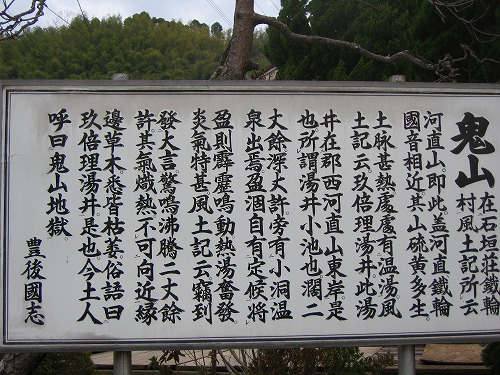 鬼山 在石垣荘鐵輪
村風土記所云
河直山。即此蓋河直鐵輪
國音相近其山硫黄多生。
土脉甚熱處處有温湯風
土記云。玖倍理湯井此湯
井在郡西河直山東岸是
也所謂湯井小池也濶二
丈餘深丈許。旁有小洞温
泉出焉盈涸自有定候将
盈則霹靂鳴動熱湯奮發。
炎氣特甚風土記云竊到
發大言驚鳴沸騰二丈餘
許其氣熾熱不可向近縁
邊草木。悉皆枯萎。俗語曰
玖倍理湯井。是也今土人
呼曰鬼山地獄。
豊後國志